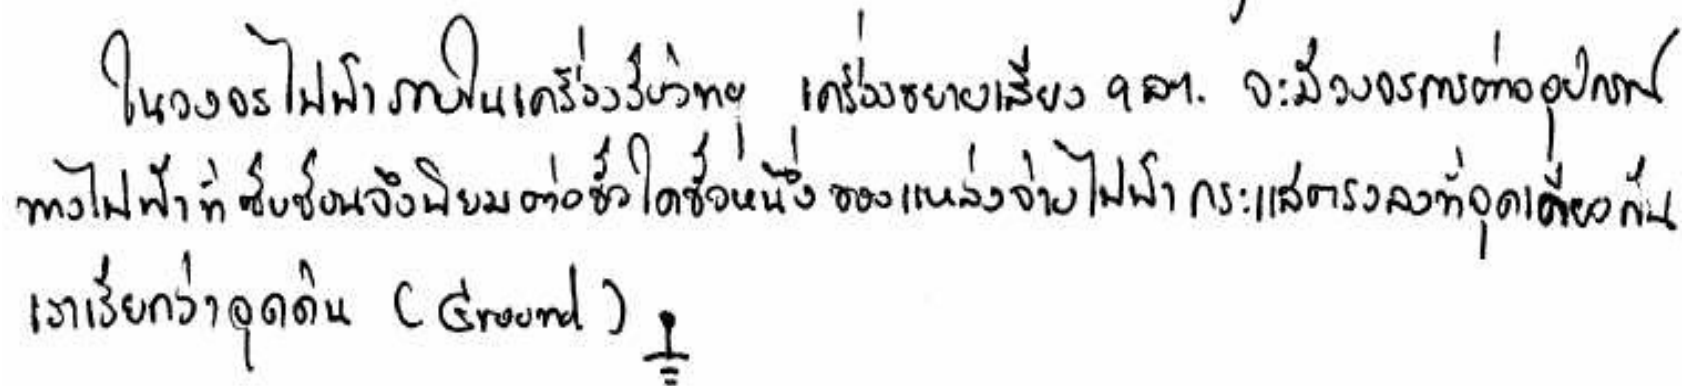 ในวงจรไฟฟ้าภายในเครื่องรับวิทยุ เครื่องขยายเสียง ฯลฯ. จะมีวงจรการต่ออุปกรณ์
ทางไฟฟ้าที่ซับซ้อนจึงนิยมต่อขั้วใดขั้วหนึ่ง ของแหล่งจ่ายไฟฟ้ากระแสตรงลงที่จุดเดียวกัน
เราเรียกว่าจุดดิน (Ground)